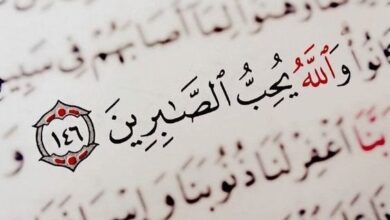 وَهَنُوا۟ لِمَآ أَصَابَهُمْ فِى سَبِيلِ
كَانُوا۟ وَٱللَّهُ يُحِبُّ ٱلصَّـٰبِرِينَ ١٤٦ و
رَبَّنَا ٱغْفِرْ لَنَا ذُنُوبَنَا وَإِسْرَافَنَا